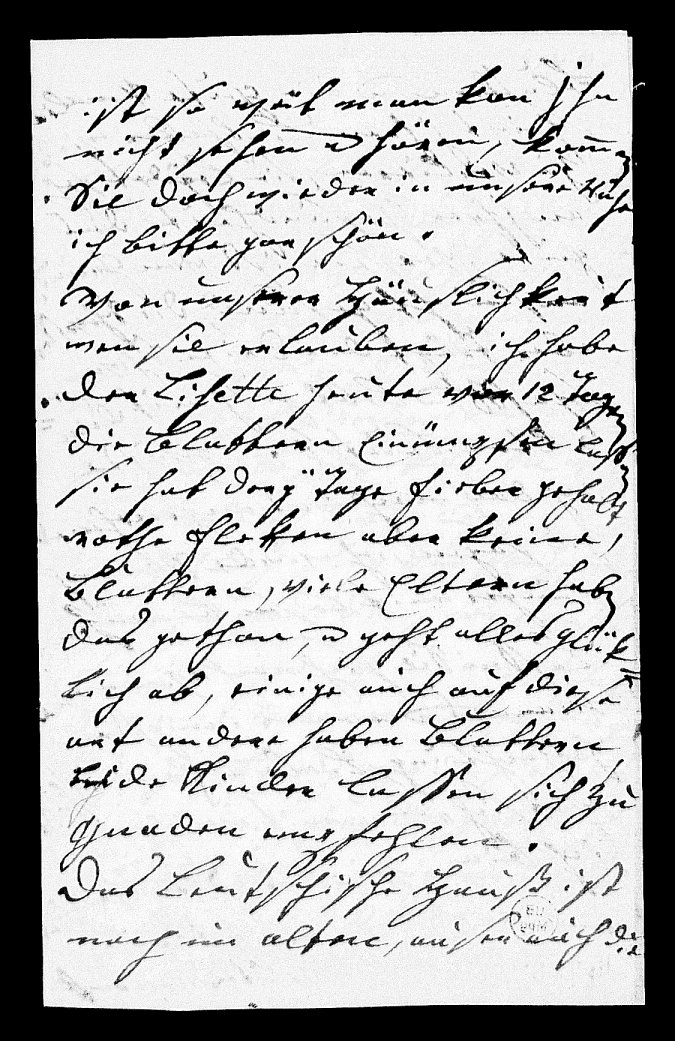 ist so weit man kan ihn
nicht sehen u hören, komm
Sie doch wieder in unsere Nähe
ich bitte gar schön.
Von unserer Häuslichkeit
wen sie erlauben, ich habe
der Lisette heute vor 12 Tagen
die Blattern laßen
sie hat drey Tage fieber gehabt
rothe flekken aber keine,
Blattern, viele Eltern haben
das gethan, u geht alles glük
lich ab, einige auch auf diese
art andere haben Blattern
beide Kinder lassen sich zu
Gnaden empfehlen.
Das Leutschische Hauß ist
noch im alten, auch die